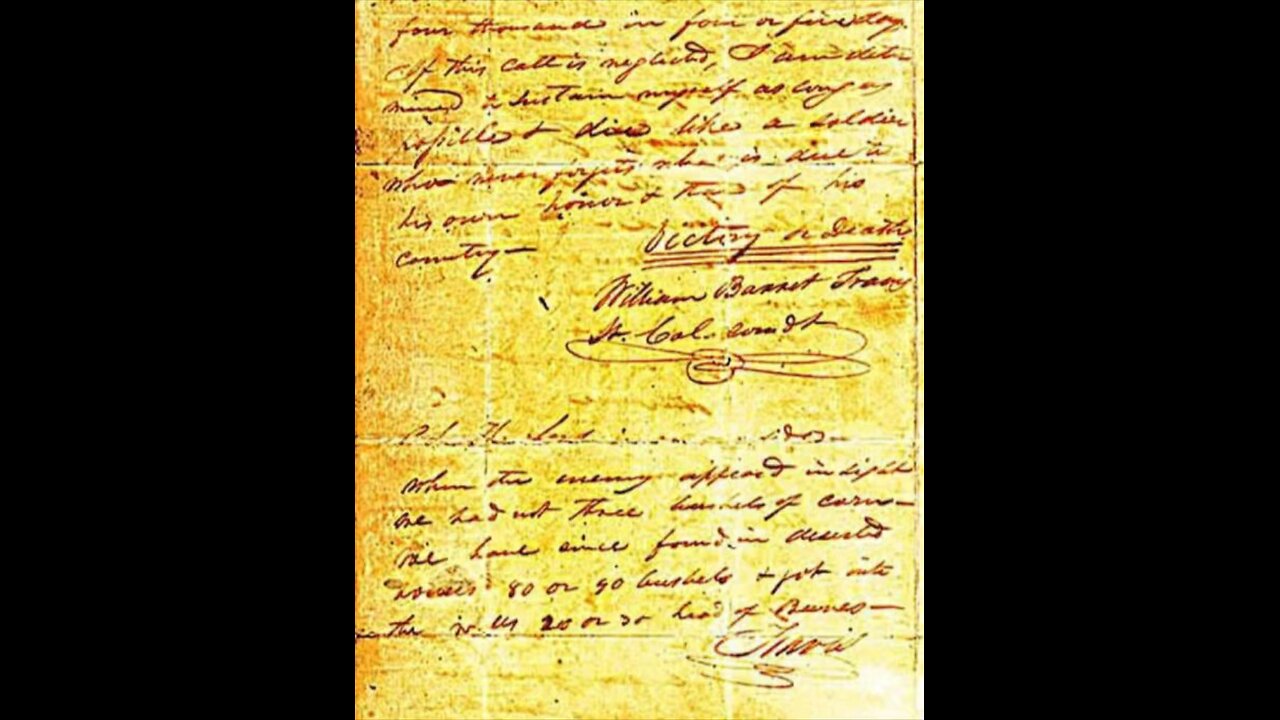 four thousand in four or five days.
If this call is neglected, I am deter
mined to sustain myself as long as
possible & die like a soldier
who never forgets what is due to
his own honor & that of his
country—
Victory or Death
William Barret Travis
Lt. Col. comdt
P.S. The Lord is on our side—
when the enemy appeard in sight
we had not three bushels of corn—
we have since found in deserted
houses 80 or 90 bushels & got into
the walls 20 or 30 head of Beeves—
Travis